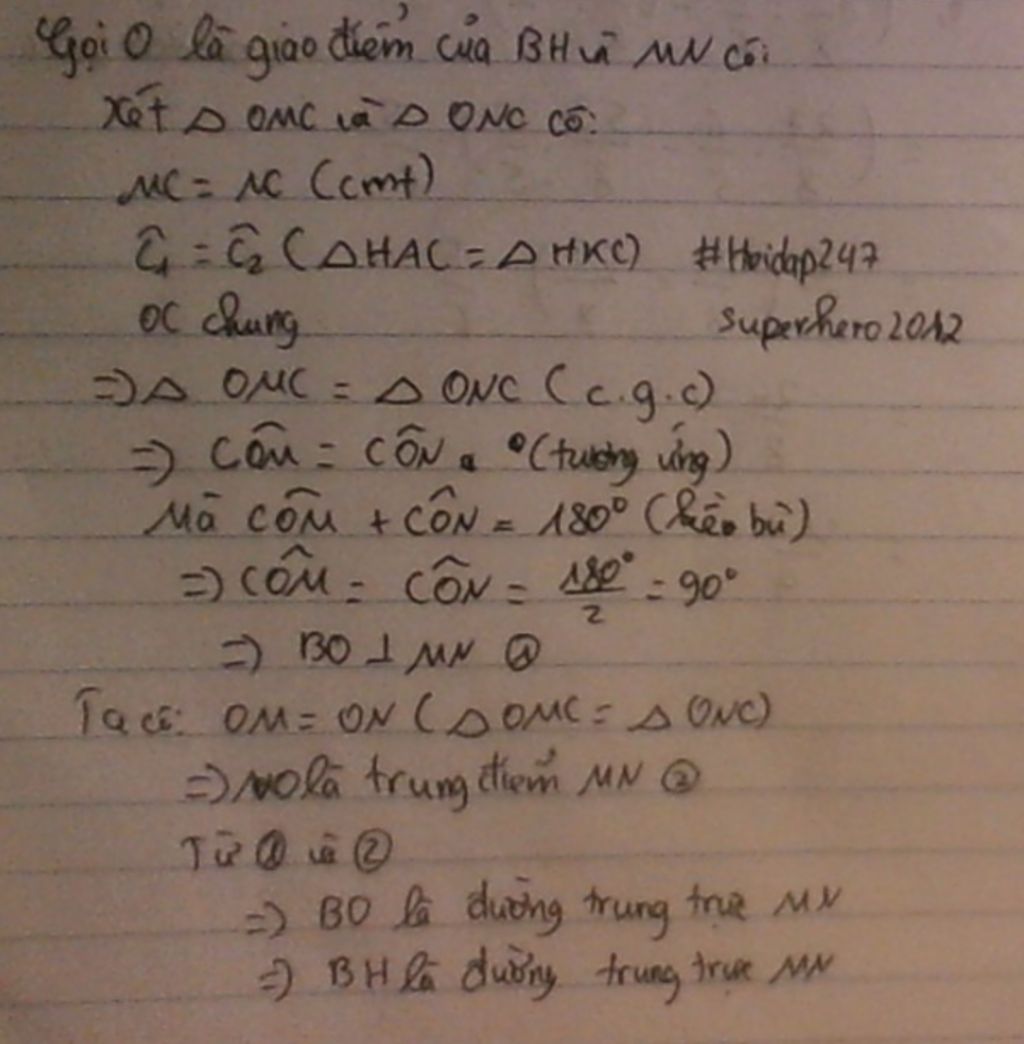 Gọi O là giao điểm của BH và MN có:
Xét △ OMC và △ ONC có:
MC = NC (cmt)
Ĉ₁ = Ĉ₂ (△HAC = △HKC) #Hoidap247
OC chung superhero2012
=> △ OMC = △ ONC (c.g.c)
=> CÔM = CÔN (tương ứng)
Mà CÔM + CÔN = 180° (kề bù)
=> CÔM = CÔN = 180°/2 = 90°
=> BO ⊥ MN ①
Ta có: OM = ON (△ OMC = △ ONC)
=> O là trung điểm MN ②
Từ ① và ②
=> BO là đường trung trực MN
=> BH là đường trung trực MN